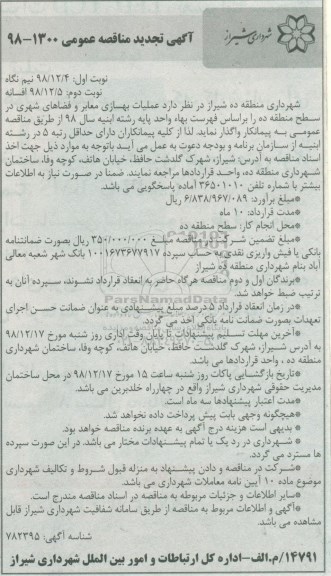 شهرداری شیراز
آگهی تجدید مناقصه عمومی ۱۳۰۰-۹۸
نوبت اول: ۹۸/۱۲/۴ نیم نگاه
نوبت دوم: ۹۸/۱۲/۵ افسانه
شهرداری منطقه ده شیراز در نظر دارد عملیات بهسازی معابر و فضاهای شهری در
سطح منطقه ده را براساس فهرست بهاء واحد پایه رشته ابنیه سال ۹۸ از طریق مناقصه
عمومی به پیمانکار واگذار نماید. لذا از کلیه پیمانکاران دارای حداقل رتبه ۵ در رشته
ابنیه از سازمان برنامه و بودجه دعوت به عمل می آید باتوجه به موارد ذیل جهت اخذ
اسناد مناقصه به آدرس: شیراز، شهرک گلدشت حافظ، خیابان هاتف، کوچه وفا، ساختمان
شهرداری منطقه ده، واحد قراردادها مراجعه نمایند. ضمنا در صورت نیاز به اطلاعات
بیشتر با شماره تلفن ۳۶۵۰۱۰۱۰ آماده پاسخگویی می باشد.
*مبلغ برآورد: ۶/۸۳۸/۹۶۷/۰۸۹ ریال
*مدت قرارداد: ۱۰ ماه
*محل انجام کار: سطح منطقه ده
*مبلغ تضمین شرکت در مناقصه مبلغ ۳۵۰/۰۰۰/۰۰۰ ریال بصورت ضمانتنامه
بانکی یا فیش واریزی نقدی به حساب سپرده ۱۰۰۱۶۷۳۶۷۷۹۱۷ بانک شهر شعبه معالی
آباد بنام شهرداری منطقه ده شیراز
*برندگان اول و دوم مناقصه هرگاه حاضر به انعقاد قرارداد نشوند، سپرده آنان به
ترتیب ضبط خواهد شد.
*در زمان انعقاد قرارداد ۵ درصد مبلغ پیشنهادی به عنوان ضمانت حسن اجرای
تعهدات بصورت ضمانت نامه بانکی اخذ می گردد.
*آخرین مهلت تسلیم پیشنهادات تا پایان وقت اداری روز شنبه مورخ ۹۸/۱۲/۱۷
به آدرس شیراز، شهرک گلدشت حافظ، خیابان هاتف، کوچه وفا، ساختمان شهرداری
منطقه ده، واحد قراردادها می باشد.
*تاریخ بازگشایی پاکات روز شنبه ساعت ۱۵ مورخ ۹۸/۱۲/۱۷ در محل ساختمان
مدیریت حقوقی شهرداری شیراز واقع در چهارراه خلدبرین می باشد.
*مدت اعتبار پیشنهادها سه ماه است.
*هیچگونه وجهی بابت پیش پرداخت داده نخواهد شد.
* بدیهی است هزینه درج آگهی به عهده برنده مناقصه خواهد بود.
* شهرداری در رد یک یا تمام پیشنهادات مختار می باشد. در این صورت سپرده
ها مسترد می گردد.
*شرکت در مناقصه و دادن پیشنهاد به منزله قبول شروط و تکالیف شهرداری
موضوع ماده ۱۰ آیین نامه معاملات شهرداری می باشد.
*سایر اطلاعات و جزئیات مربوطه به مناقصه در اسناد مناقصه مندرج است.
*آگهی و اطلاعات مربوط به مناقصه از طریق سامانه شفافیت شهرداری شیراز قابل
مشاهده می باشد.
شناسه آگهی: ۷۸۲۳۹۵
۱۴۷۹۱/م.الف-اداره کل ارتباطات و امور بین الملل شهرداری شیراز